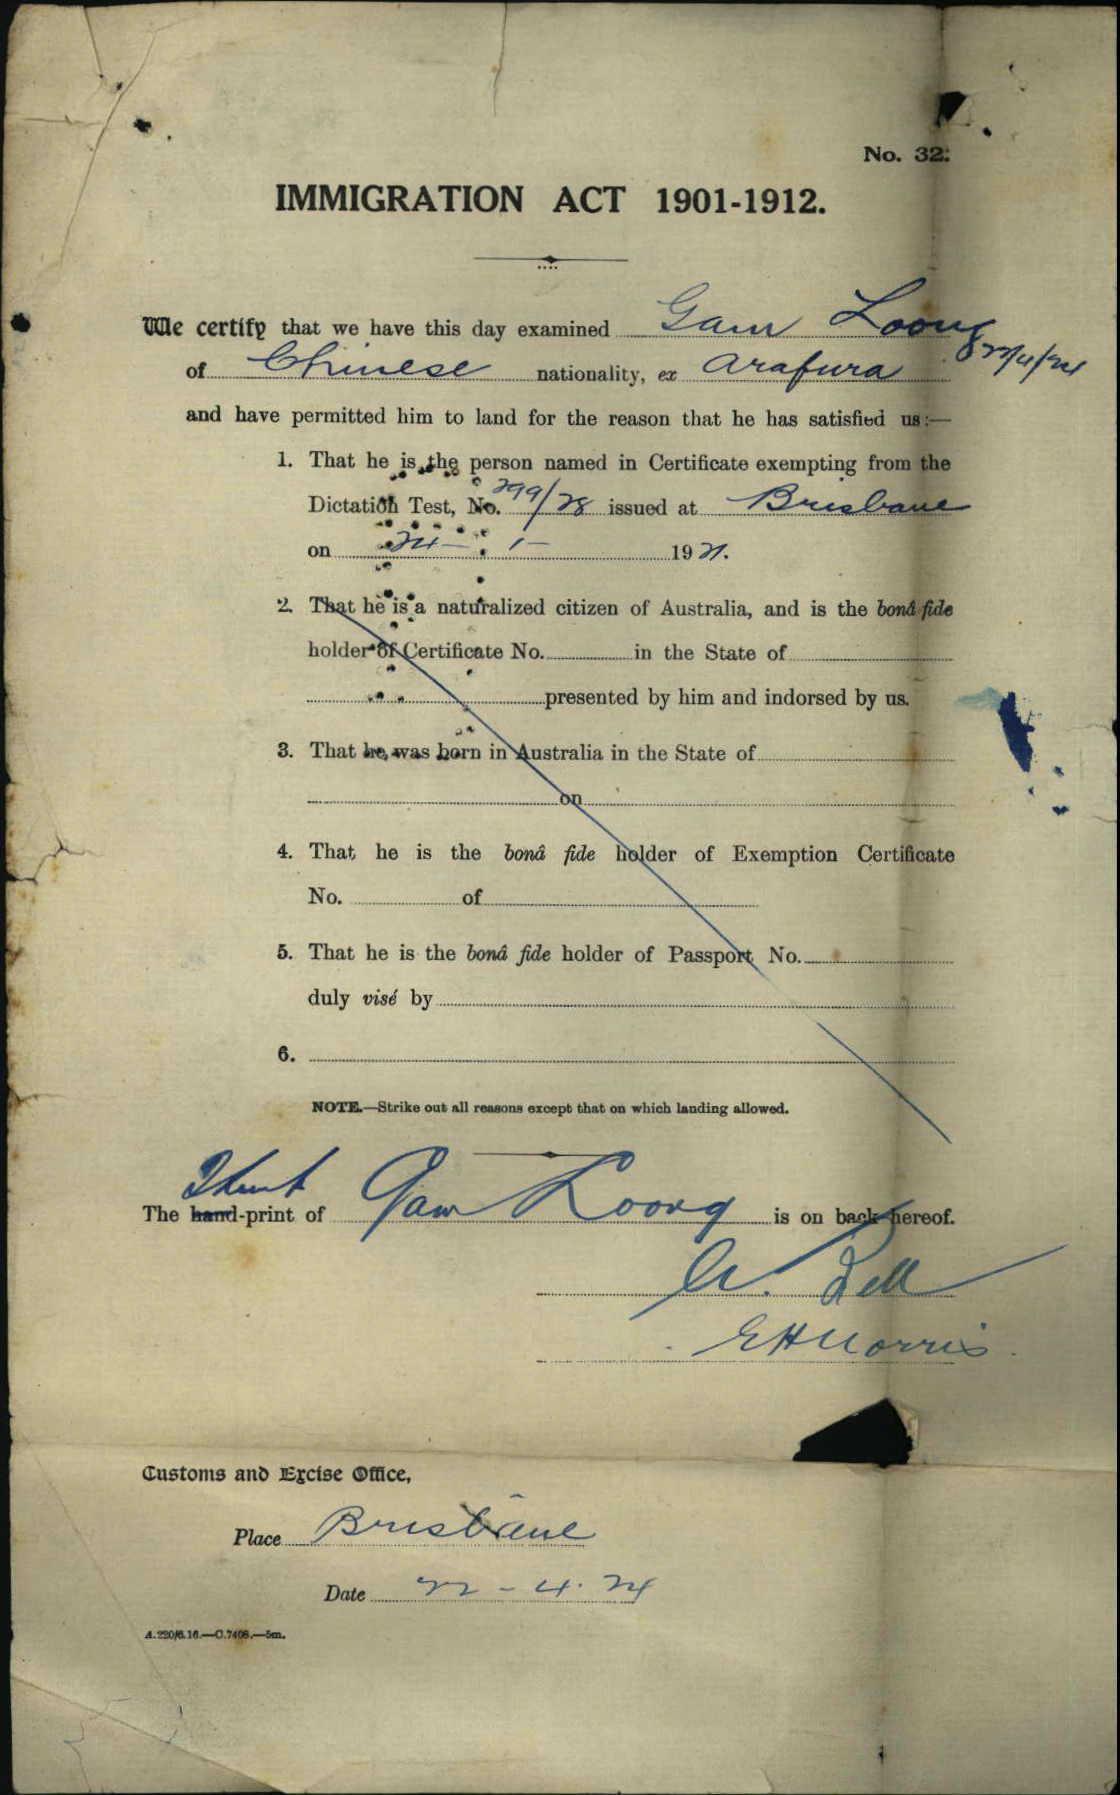 No. 32.
IMMIGRATION ACT 1901-1912.
We certify that we have this day examined Gam Loong
22/4/24
of Chinese nationality, ex Arafura
and have permitted him to land for the reason that he has satisfied us:—
1. That he is the person named in Certificate exempting from the
Dictation Test, No. 299/28 issued at Brisbane
on 24 - 1 - 1921.
2. That he is a naturalized citizen of Australia, and is the bonâ fide
holder of Certificate No. in the State of
presented by him and indorsed by us.
3. That he was born in Australia in the State of
on
4. That he is the bonâ fide holder of Exemption Certificate
No. of
5. That he is the bonâ fide holder of Passport No.
duly visé by
6.
NOTE.—Strike out all reasons except that on which landing allowed.
The hand-print of Gam Loong is on back hereof.
EHNorris
Customs and Excise Office,
Place Brisbane
Date 22 - 4. 24
A.220/6.16.—C.7408.—5m.